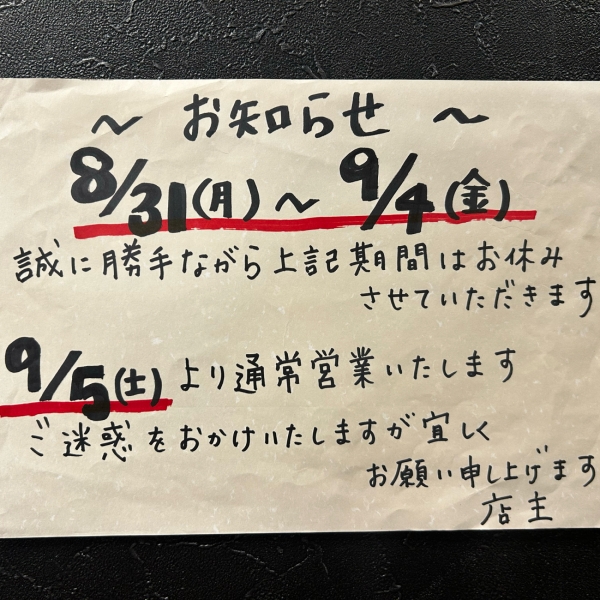 ～ お知らせ ～
8/31(月)～9/4(金)
誠に勝手ながら上記期間はお休み
させていただきます
9/5(土)より通常営業いたします
ご迷惑をおかけいたしますが宜しく
お願い申し上げます
店主